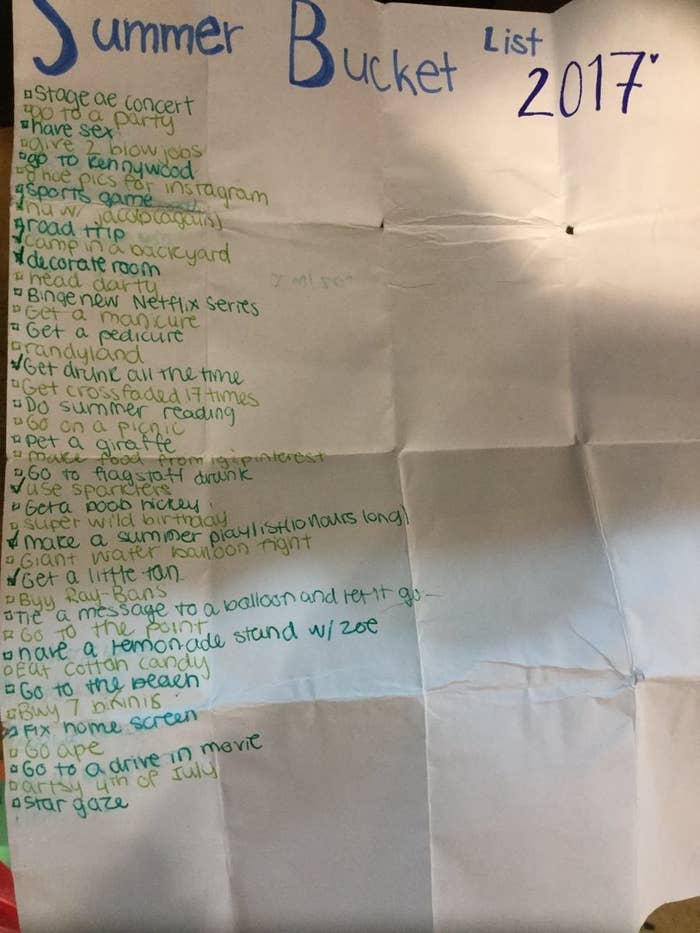 Summer Bucket List
2017
Stage ae concert
go to a party
have sex
give 2 blow jobs
go to Kennywood
pics for instagram
sports game
w/ jacub(again)
road trip
camp in a backyard
decorate room
head darty
Binge new Netflix series
Get a manicure
Get a pedicure
randyland
Get drunk all the time
Get crossfaded 17 times
Do summer reading
Go on a picnic
pet a giraffe
make food from ig/pinterest
Go to flagstaff drunk
use sparklers
Get a boob hickey
super wild birthday
make a summer playlist(10 hours long)
Giant water balloon fight
Get a little tan
Byy Ray-Bans
Tie a message to a balloon and let it go
Go to the point
have a lemonade stand w/ zoe
Eat cotton candy
Go to the beach
Buy 7 bikinis
Fix home screen
Go ape
Go to a drive in movie
artsy 4th of July
star gaze